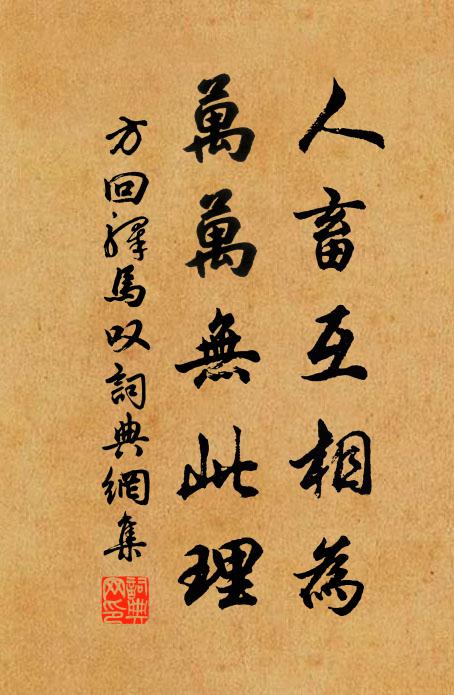 人畜互相為
萬萬無此理
方回釋馬叹詞典網集
詞典網印